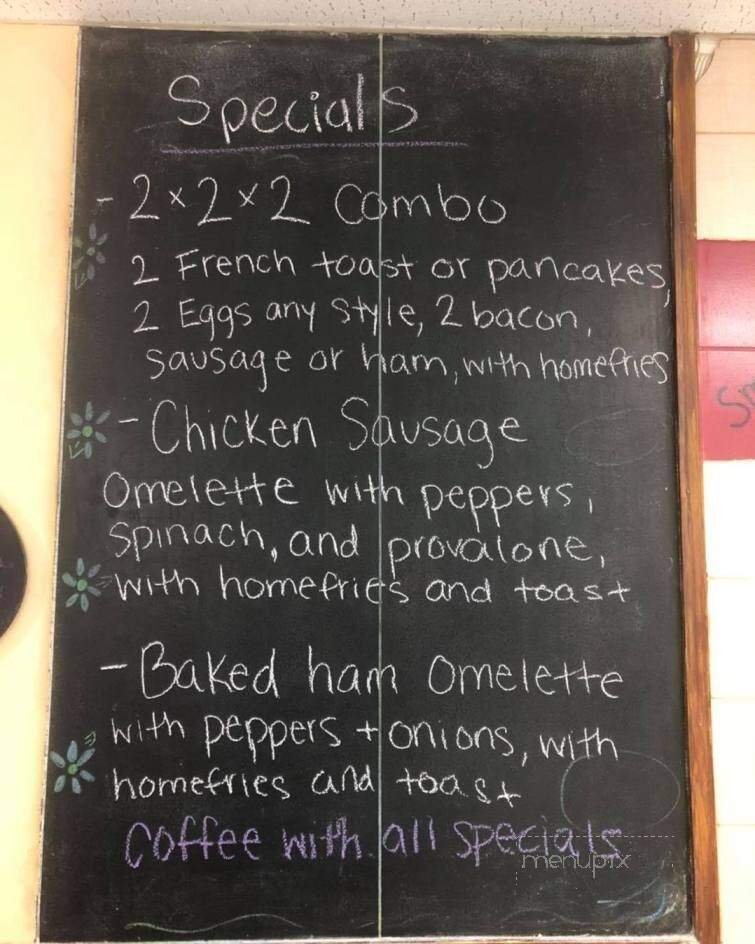 Specials
- 2 x 2 x 2 combo
2 French toast or pancakes,
2 Eggs any style, 2 bacon,
sausage or ham, with homefries
- Chicken Sausage
Omelette with peppers,
spinach, and provalone,
with homefries and toast
- Baked ham omelette
with peppers + onions, with
homefries and toast
coffee with all specials
menupix